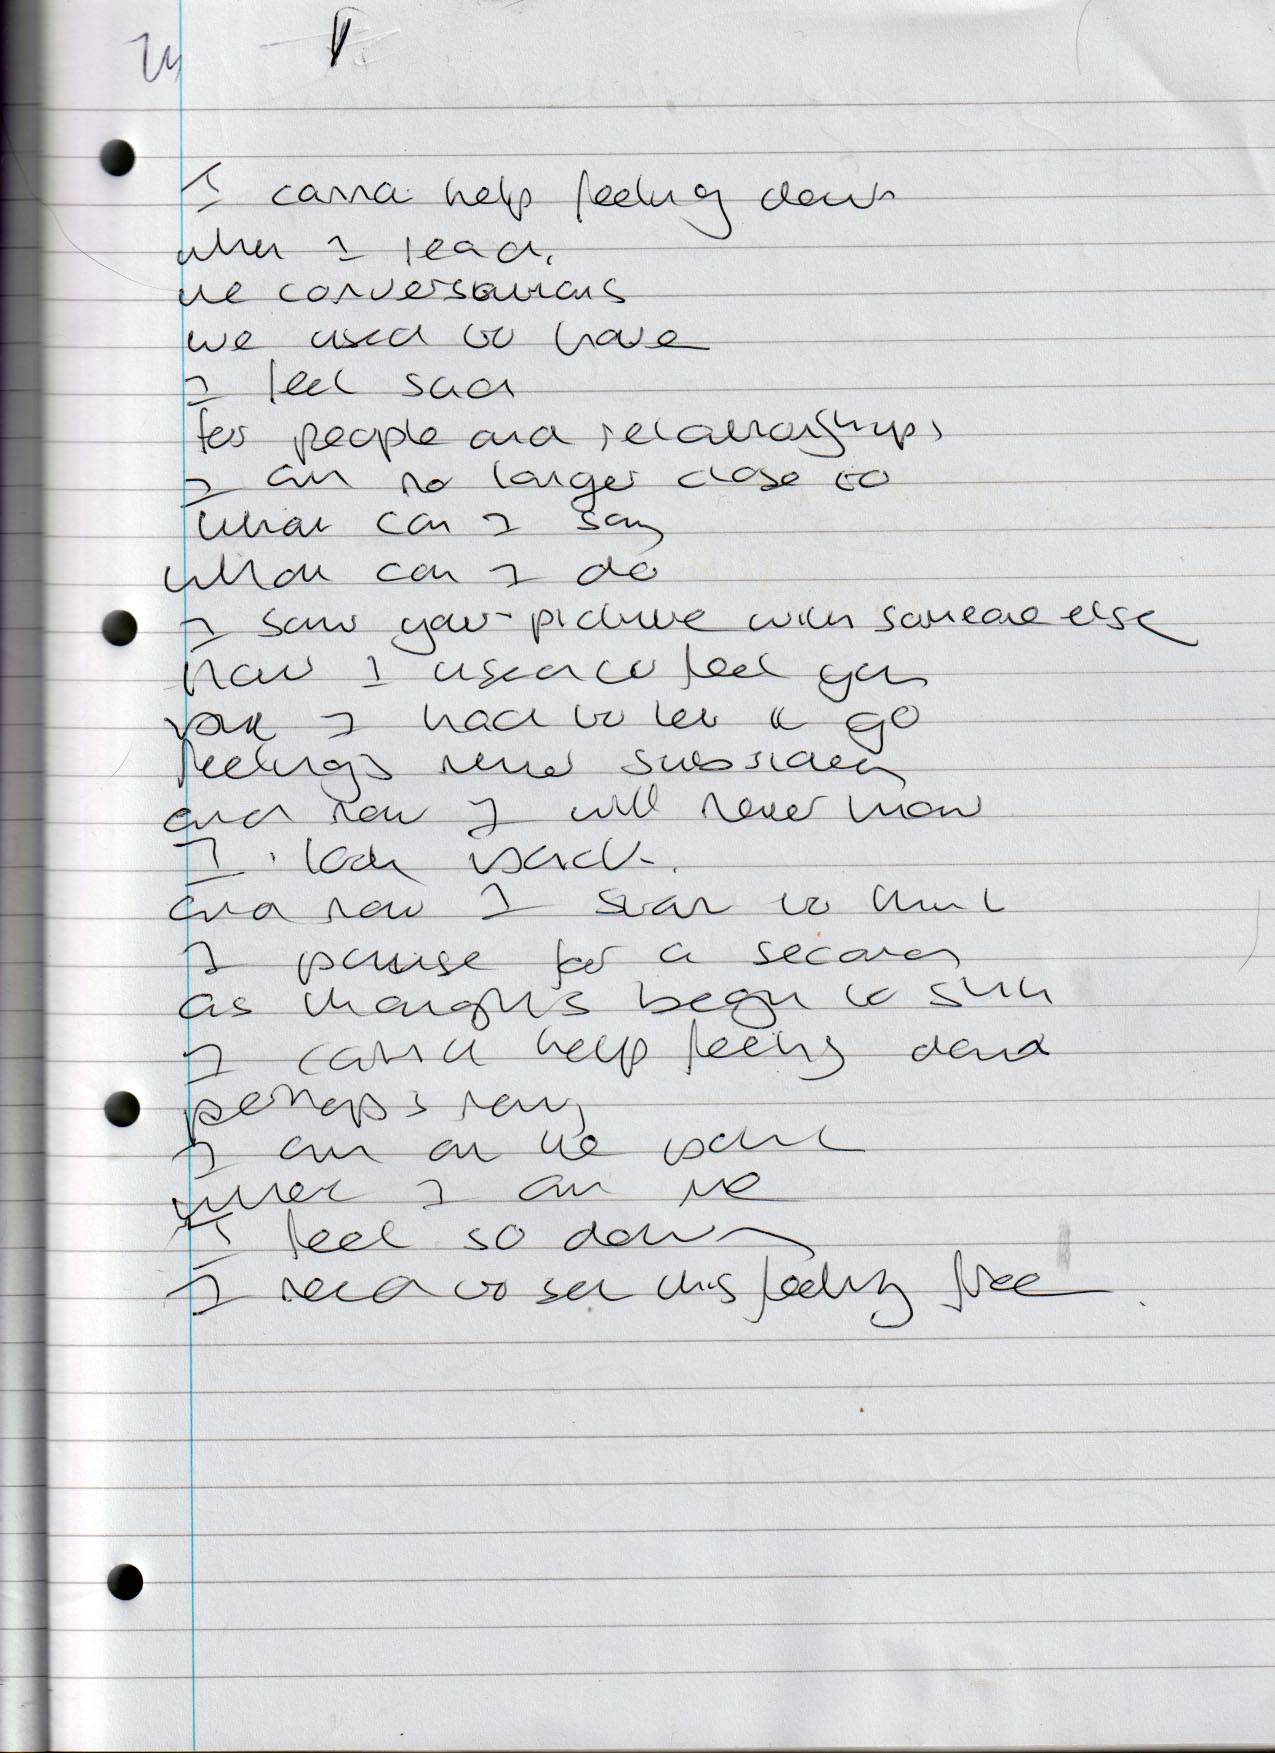 I canna help feeling down
when I read,
the conversations
we used to have
I feel sad
for people and relationships
I am no longer close to
what can I say
what can I do
I saw your picture with someone else
how I used to feel you
but I had to let it go
feelings never subsided
and now I will never know
I look back.
and now I start to think
I pause for a second
as thoughts begin to sink
I canna help feeling dead
perhaps
I am on the
when I am me
I feel so down
I need to set this feeling free